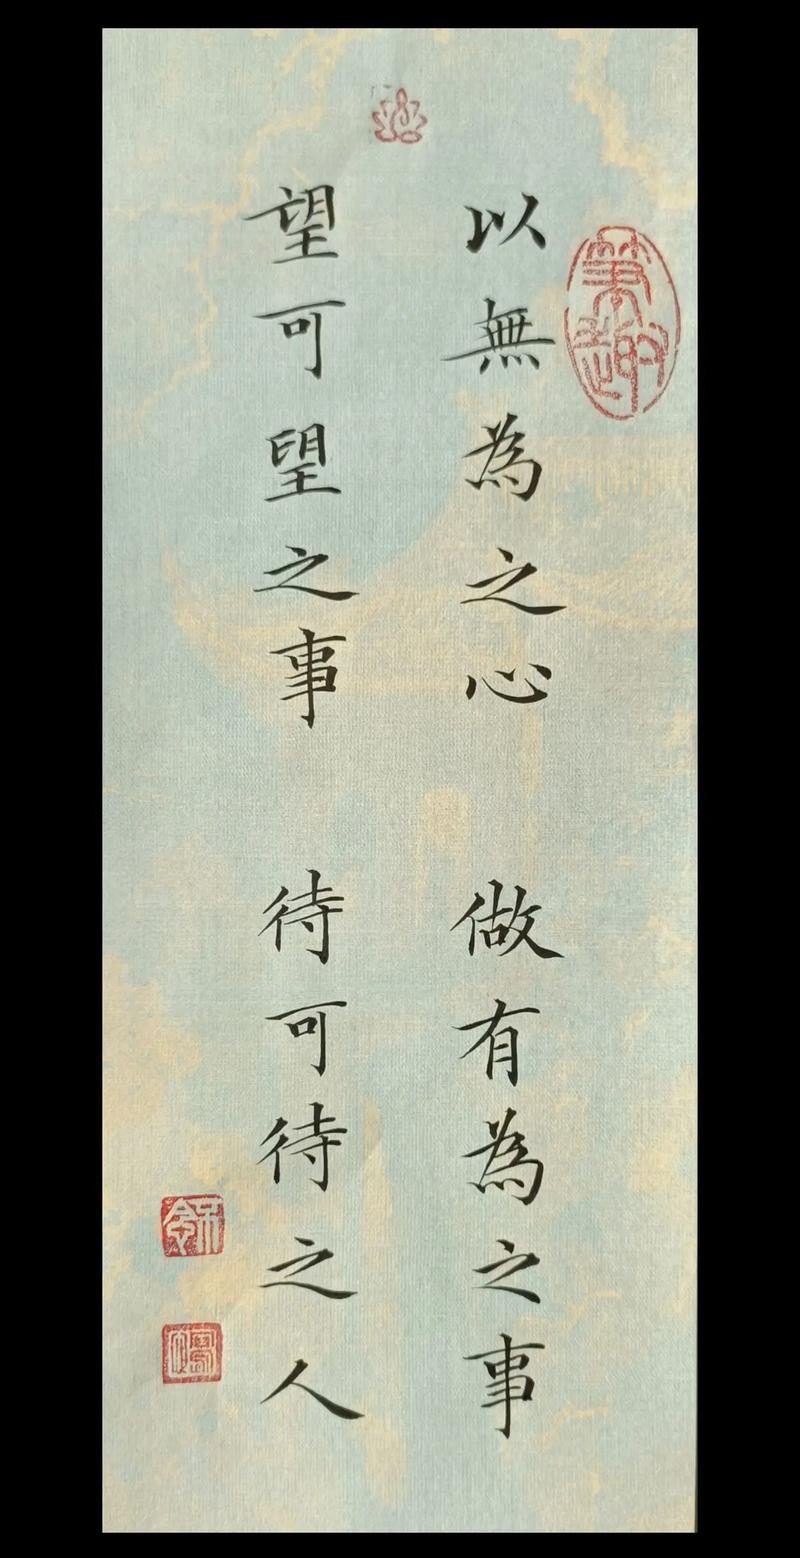 以無為之心 做有為之事
望可望之事 待可待之人
筆趣